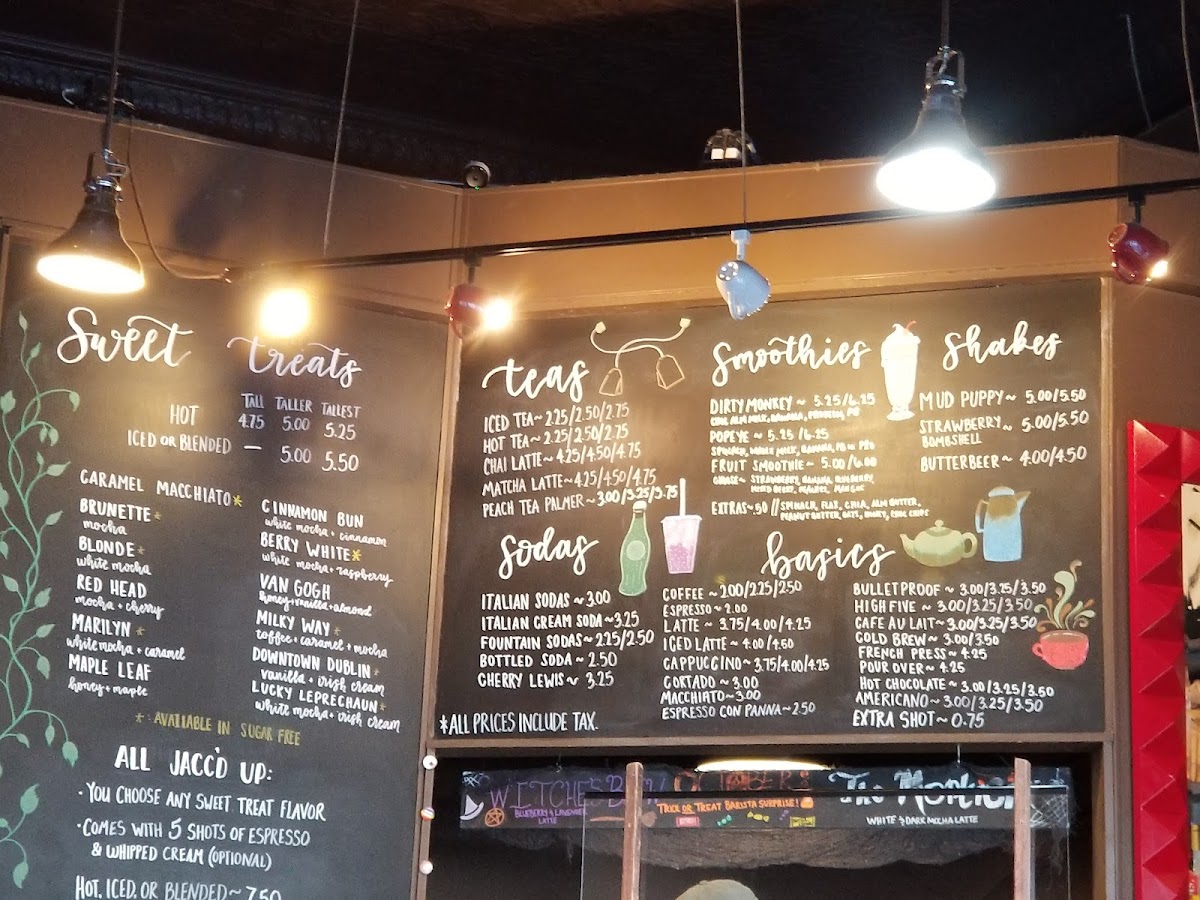 Sweet treats
TALL TALLER TALLEST
HOT 4.75 5.00 5.25
ICED OR BLENDED — 5.00 5.50
CARAMEL MACCHIATO*
BRUNETTE*
mocha
BLONDE*
white mocha
RED HEAD
mocha + cherry
MARILYN *
white mocha + caramel
MAPLE LEAF
honey + maple
CINNAMON BUN
white mocha + cinnamon
BERRY WHITE*
white mocha + raspberry
VAN GOGH
honey + vanilla + almond
MILKY WAY*
toffee + caramel + mocha
DOWNTOWN DUBLIN*
vanilla + irish cream
LUCKY LEPRECHAUN*
white mocha + irish cream
* AVAILABLE IN SUGAR FREE
ALL JACC'D UP:
• YOU CHOOSE ANY SWEET TREAT FLAVOR
• COMES WITH 5 SHOTS OF ESPRESSO
& WHIPPED CREAM (OPTIONAL)
HOT, ICED, OR BLENDED ~ 7.50
teas
ICED TEA ~ 2.25/2.50/2.75
HOT TEA ~ 2.25/2.50/2.75
CHAI LATTE ~ 4.25/4.50/4.75
MATCHA LATTE ~ 4.25/4.50/4.75
PEACH TEA PALMER ~ 3.00/3.25/3.75
Smoothies
DIRTY MONKEY ~ 5.25/6.25
POPEYE ~ 5.25/6.25
SPINACH, WHOLE MILK, BANANA, PB
FRUIT SMOOTHIE ~ 5.00/6.00
CHOOSE ~ STRAWBERRY, BANANA, BLUEBERRY,
MIXED BERRY, MANGO
EXTRAS ~ 50 // SPINACH, FLAX, CHIA, ALM BUTTER,
PEANUT BUTTER, OATS, HONEY, CHOC CHIPS
Shakes
MUD PUPPY ~ 5.00/5.50
STRAWBERRY ~ 5.00/5.50
BOMBSHELL
BUTTERBEER ~ 4.00/4.50
Sodas
ITALIAN SODAS ~ 3.00
ITALIAN CREAM SODA ~ 3.25
FOUNTAIN SODAS ~ 2.25/2.50
BOTTLED SODA ~ 2.50
CHERRY LEWIS ~ 3.25
*ALL PRICES INCLUDE TAX.
basics
COFFEE ~ 2.00/2.25/2.50
ESPRESSO ~ 2.00
LATTE ~ 3.75/4.00/4.25
ICED LATTE ~ 4.00/4.60
CAPPUCCINO ~ 3.75/4.00/4.25
CORTADO ~ 3.00
MACCHIATO ~ 3.00
ESPRESSO CON PANNA ~ 2.50
BULLETPROOF ~ 3.00/3.25/3.50
HIGH FIVE ~ 3.00/3.25/3.50
CAFE AU LAIT ~ 3.00/3.25/3.50
COLD BREW ~ 3.00/3.50
FRENCH PRESS ~ 4.25
POUR OVER ~ 4.25
HOT CHOCOLATE ~ 3.00/3.25/3.50
AMERICANO ~ 3.00/3.25/3.50
EXTRA SHOT ~ 0.75
WITCHES
BLUEBERRY & LAVENDER
LATTE
TRICK OR TREAT BARISTA SURPRISE!
The
WHITE & DARK MOCHA LATTE